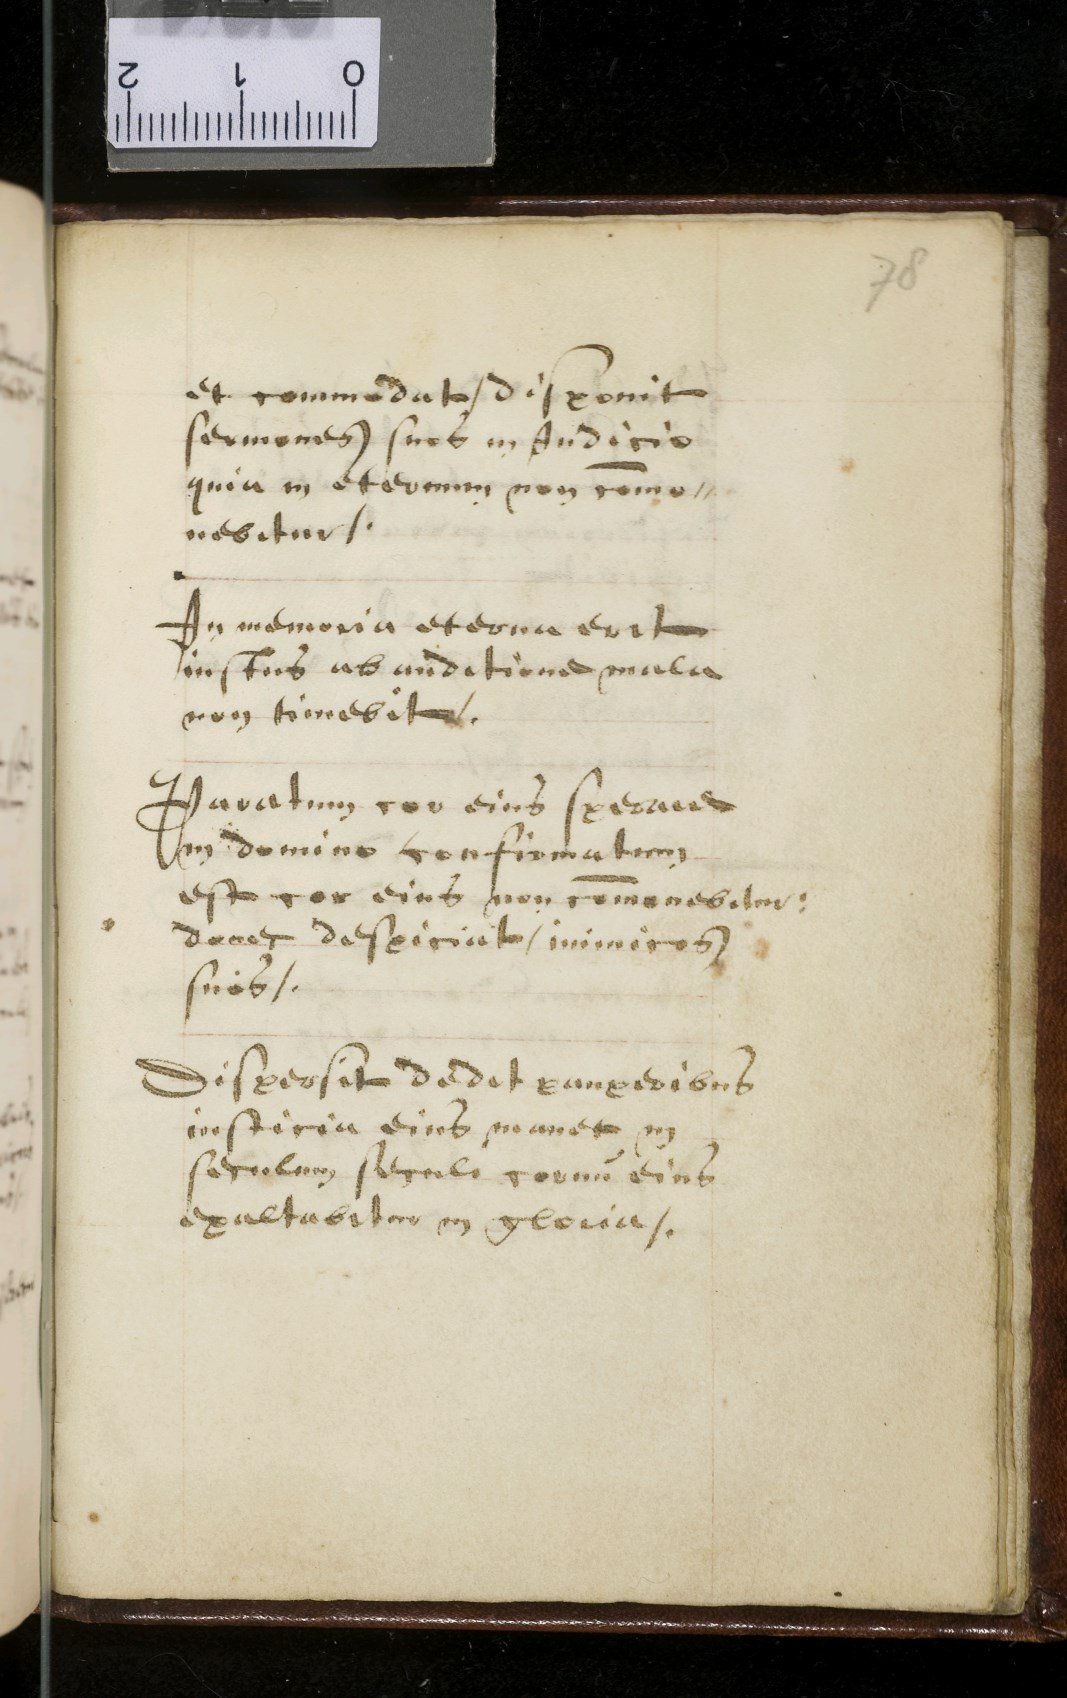 2 1 0
78
et commodat / disponit
sermones suos in Iudicio
quia in eternum non com̄o//
uebitur /.
In memoria eterna erit
iustus ab auditione mala
non timebit /.
Paratum cor eius sperare
in domino confirmatum
est cor eius non com̄ouebitur:
donec despiciat / inimicos
suos /.
Dispersit dedit pauperibus
iusticia eius manet in
seculum seculi cornu eius
exaltabitur in gloria /.